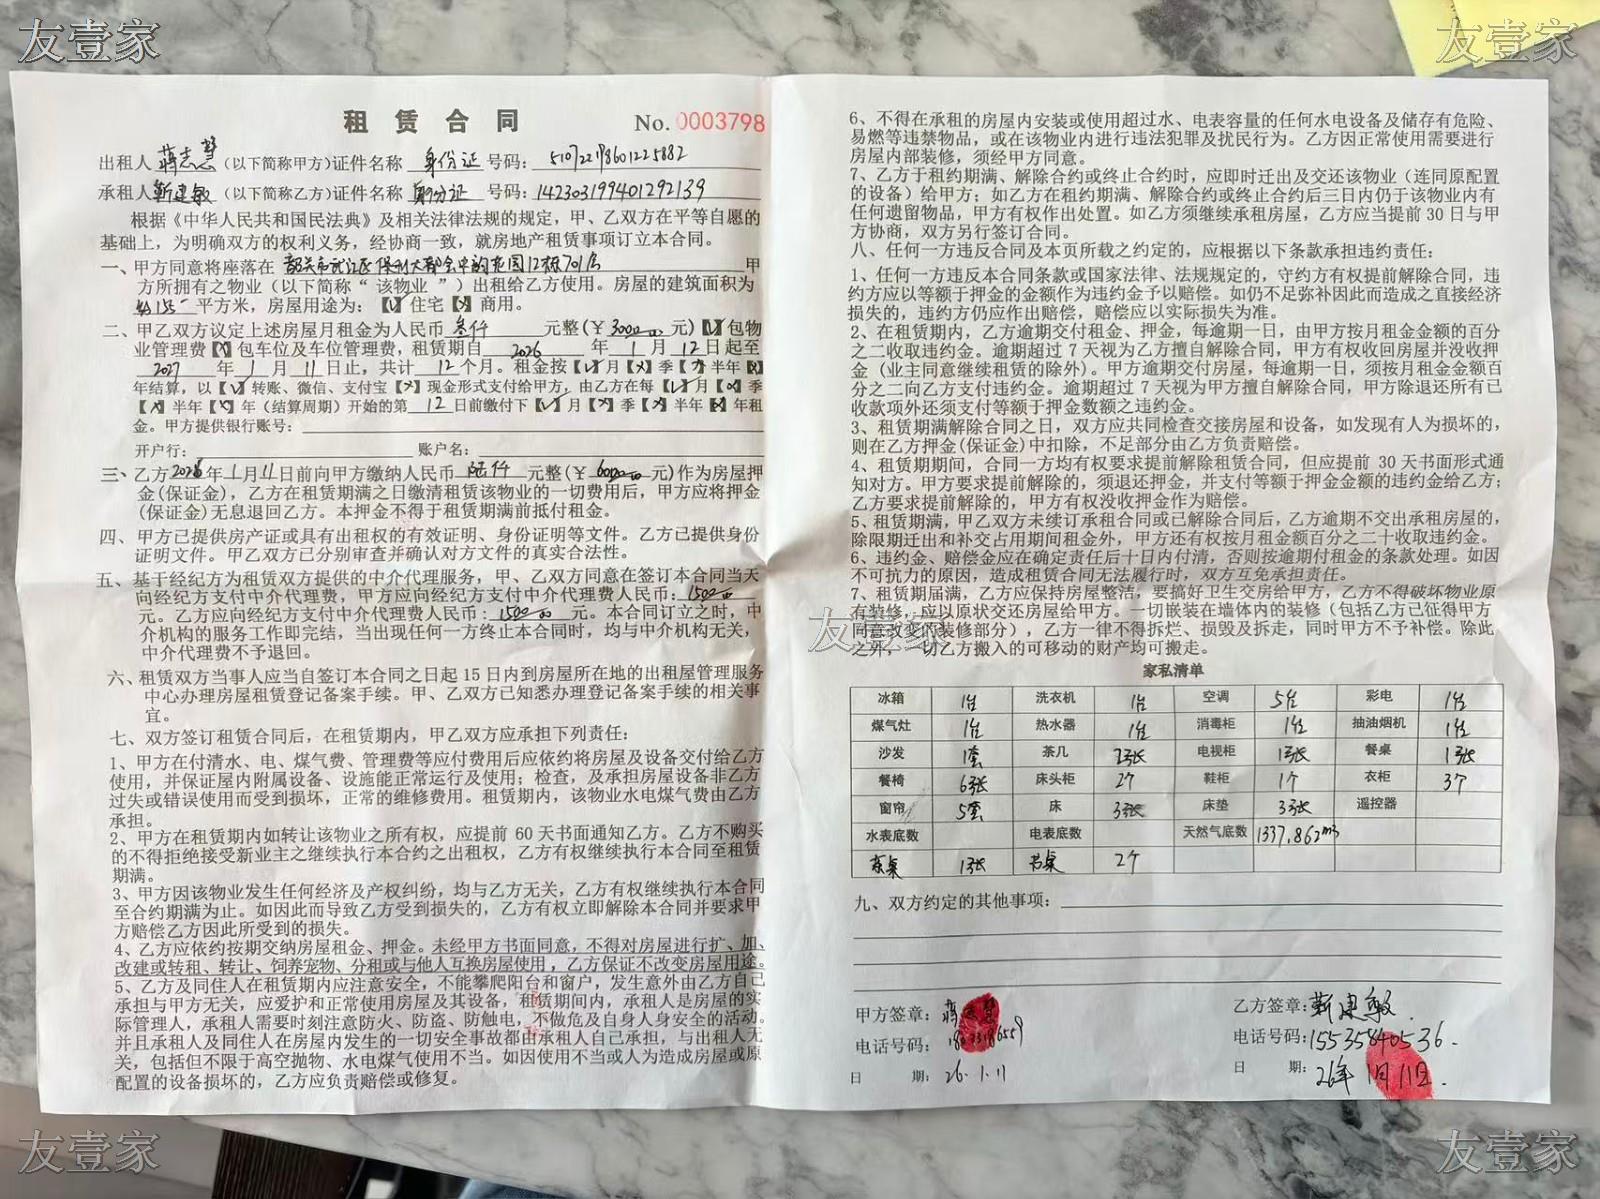 友壹家
友壹家
租赁合同 No. 0003798
出租人 蒋志慧 (以下简称甲方)证件名称 身份证 号码: 510722198601225882
承租人 靳建敏 (以下简称乙方)证件名称 身份证 号码: 142303199401292139
根据《中华人民共和国民法典》及相关法律法规的规定，甲、乙双方在平等自愿的
基础上，为明确双方的权利义务，经协商一致，就房地产租赁事项订立本合同。
一、甲方同意将座落在 韶关市武江区保利大都会中韵花园12栋701房 甲
方所拥有之物业（以下简称“该物业”）出租给乙方使用。房屋的建筑面积为
155 平方米，房屋用途为：【√】住宅【×】商用。
二、甲乙双方议定上述房屋月租金为人民币 叁仟 元整(￥3000.00元)【√】包物
业管理费【×】包车位及车位管理费，租赁期自 2026 年 1 月 12 日起至
2027 年 1 月 11 日止，共计 12 个月。租金按【√】月【×】季【×】半年【×】
年结算，以【√】转账、微信、支付宝【×】现金形式支付给甲方，由乙方在每【√】月【×】季
【×】半年【×】年（结算周期）开始的第 12 日前缴付下【√】月【×】季【×】半年【×】年租
金。甲方提供银行账号：
开户行： 账户名：
三、乙方2026年1月11日前向甲方缴纳人民币 陆仟 元整(￥6000元)作为房屋押
金(保证金)，乙方在租赁期满之日缴清租赁该物业的一切费用后，甲方应将押金
(保证金)无息退回乙方。本押金不得于租赁期满前抵付租金。
四、甲方已提供房产证或具有出租权的有效证明、身份证明等文件。乙方已提供身份
证明文件。甲乙双方已分别审查并确认对方文件的真实合法性。
五、基于经纪方为租赁双方提供的中介代理服务，甲、乙双方同意在签订本合同当天
向经纪方支付中介代理费，甲方应向经纪方支付中介代理费人民币：1500.00
元。乙方应向经纪方支付中介代理费人民币：1500.00 元。本合同订立之时，中
介机构的服务工作即完结，当出现任何一方终止本合同时，均与中介机构无关，
中介代理费不予退回。
六、租赁双方当事人应当自签订本合同之日起 15 日内到房屋所在地的出租屋管理服务
中心办理房屋租赁登记备案手续。甲、乙双方已知悉办理登记备案手续的相关事
宜。
七、双方签订租赁合同后，在租赁期内，甲乙双方应承担下列责任：
1、甲方在付清水、电、煤气费、管理费等应付费用后应依约将房屋及设备交付给乙方
使用，并保证屋内附属设备、设施能正常运行及使用；检查，及承担房屋设备非乙方
过失或错误使用而受到损坏，正常的维修费用。租赁期内，该物业水电煤气费由乙方
承担。
2、甲方在租赁期内如转让该物业之所有权，应提前 60 天书面通知乙方。乙方不购买
的不得拒绝接受新业主之继续执行本合约之出租权，乙方有权继续执行本合同至租赁
期满。
3、甲方因该物业发生任何经济及产权纠纷，均与乙方无关，乙方有权继续执行本合同
至合约期满为止。如因此而导致乙方受到损失的，乙方有权立即解除本合同并要求甲
方赔偿乙方因此所受到的损失。
4、乙方应依约按期交纳房屋租金、押金。未经甲方书面同意，不得对房屋进行扩、加、
改建或转租、转让、饲养宠物、分租或与他人互换房屋使用，乙方保证不改变房屋用途。
5、乙方及同住人在租赁期内应注意安全，不能攀爬阳台和窗户，发生意外由乙方自己
承担与甲方无关，应爱护和正常使用房屋及其设备，租赁期间内，承租人是房屋的实
际管理人，承租人需要时刻注意防火、防盗、防触电，不做危及自身人身安全的活动。
并且承租人及同住人在房屋内发生的一切安全事故都由承租人自己承担，与出租人无
关，包括但不限于高空抛物、水电煤气使用不当。如因使用不当或人为造成房屋或原
配置的设备损坏的，乙方应负责赔偿或修复。
6、不得在承租的房屋内安装或使用超过水、电表容量的任何水电设备及储存有危险、
易燃等违禁物品，或在该物业内进行违法犯罪及扰民行为。乙方因正常使用需要进行
房屋内部装修，须经甲方同意。
7、乙方于租约期满、解除合约或终止合约时，应即时迁出及交还该物业（连同原配置
的设备）给甲方；如乙方在租约期满、解除合约或终止合约后三日内仍于该物业内有
任何遗留物品，甲方有权作出处置。如乙方须继续承租房屋，乙方应当提前 30 日与甲
方协商，双方另行签订合同。
八、任何一方违反合同及本页所载之约定的，应根据以下条款承担违约责任：
1、任何一方违反本合同条款或国家法律、法规规定的，守约方有权提前解除合同，违
约方应以等额于押金的金额作为违约金予以赔偿。如仍不足弥补因此而造成之直接经济
损失的，违约方仍应作出赔偿，赔偿应以实际损失为准。
2、在租赁期内，乙方逾期交付租金、押金，每逾期一日，由甲方按月租金金额的百分
之二收取违约金。逾期超过 7 天视为乙方擅自解除合同，甲方有权收回房屋并没收押
金（业主同意继续租赁的除外）。甲方逾期交付房屋，每逾期一日，须按月租金金额百
分之二向乙方支付违约金。逾期超过 7 天视为甲方擅自解除合同，甲方除退还所有已
收款项外还须支付等额于押金数额之违约金。
3、租赁期满解除合同之日，双方应共同检查交接房屋和设备，如发现有人为损坏的，
则在乙方押金(保证金)中扣除，不足部分由乙方负责赔偿。
4、租赁期期间，合同一方均有权要求提前解除租赁合同，但应提前 30 天书面形式通
知对方。甲方要求提前解除的，须退还押金，并支付等额于押金金额的违约金给乙方；
乙方要求提前解除的，甲方有权没收押金作为赔偿。
5、租赁期满，甲乙双方未续订承租合同或已解除合同后，乙方逾期不交出承租房屋的，
除限期迁出和补交占用期间租金外，甲方还有权按月租金额百分之二十收取违约金。
6、违约金、赔偿金应在确定责任后十日内付清，否则按逾期付租金的条款处理。如因
不可抗力的原因，造成租赁合同无法履行时，双方互免承担责任。
7、租赁届满，乙方应保持房屋整洁，要搞好卫生交房给甲方，乙方不得破坏物业原
有装修，应以原状交还房屋给甲方。一切嵌装在墙体内的装修（包括乙方已征得甲方
同意改变的装修部分），乙方一律不得拆烂、损毁及拆走，同时甲方不予补偿。除此
之外，一切乙方搬入的可移动的财产均可搬走。
友壹家
家私清单
冰箱 1台 洗衣机 1台 空调 5台 彩电 1台
煤气灶 1台 热水器 1台 消毒柜 1台 抽油烟机 1台
沙发 1套 茶几 2张 电视柜 1张 餐桌 1张
餐椅 6张 床头柜 2个 鞋柜 1个 衣柜 3个
窗帘 5套 床 3张 床垫 3张 遥控器
水表底数 电表底数 天然气底数 1337.862m³
茶桌 1张 书桌 2个
九、双方约定的其他事项：
甲方签章：蒋志慧 乙方签章：靳建敏
电话号码： 电话号码：15535840536
日 期：26.1.11 日 期：26年1月11日
友壹家
友壹家